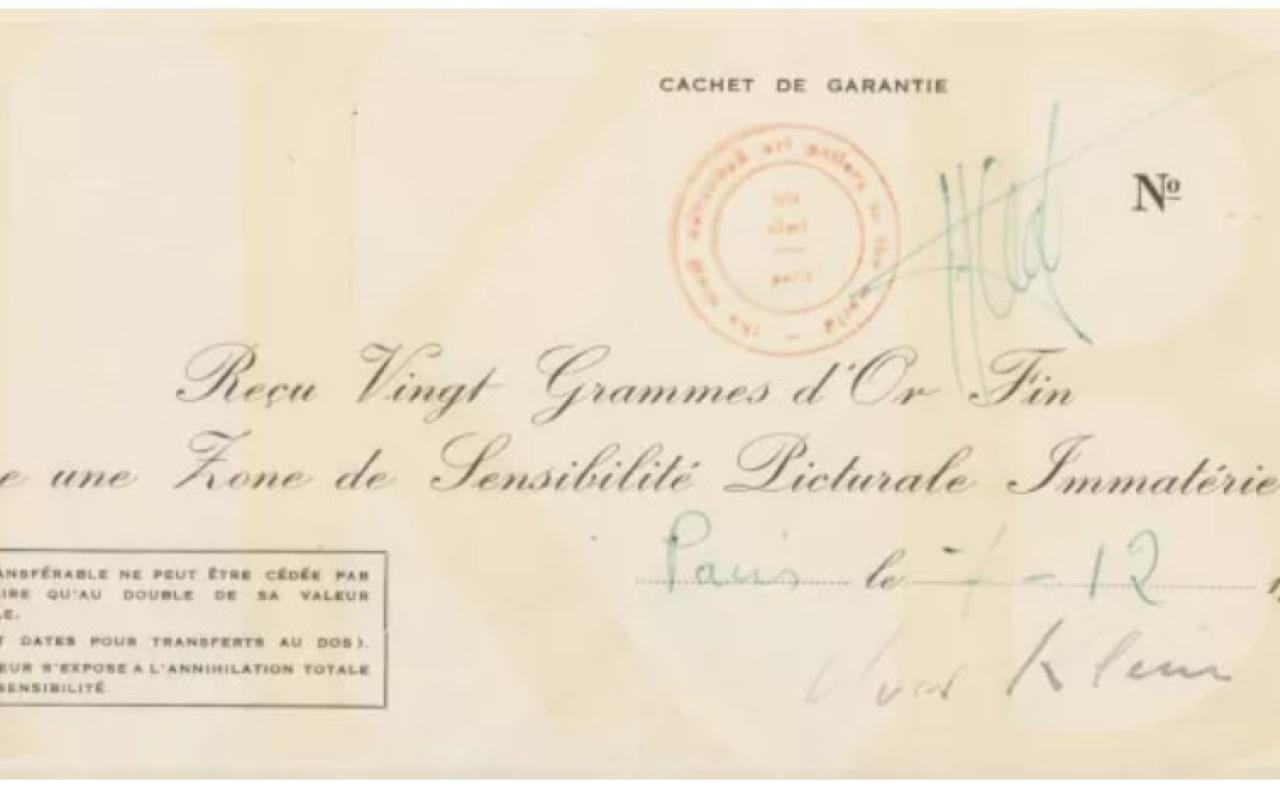 CACHET DE GARANTIE
Nº
Reçu Vingt Grammes d'Or Fin
e une Zone de Sensibilité Picturale Immatérie
Paris le 7-12
Yves Klein
ANSFÉRABLE NE PEUT ÊTRE CÉDÉE PAR
IRE QU'AU DOUBLE DE SA VALEUR
LE.
T DATES POUR TRANSFERTS AU DOS).
EUR S'EXPOSE A L'ANNIHILATION TOTALE
SENSIBILITÉ.